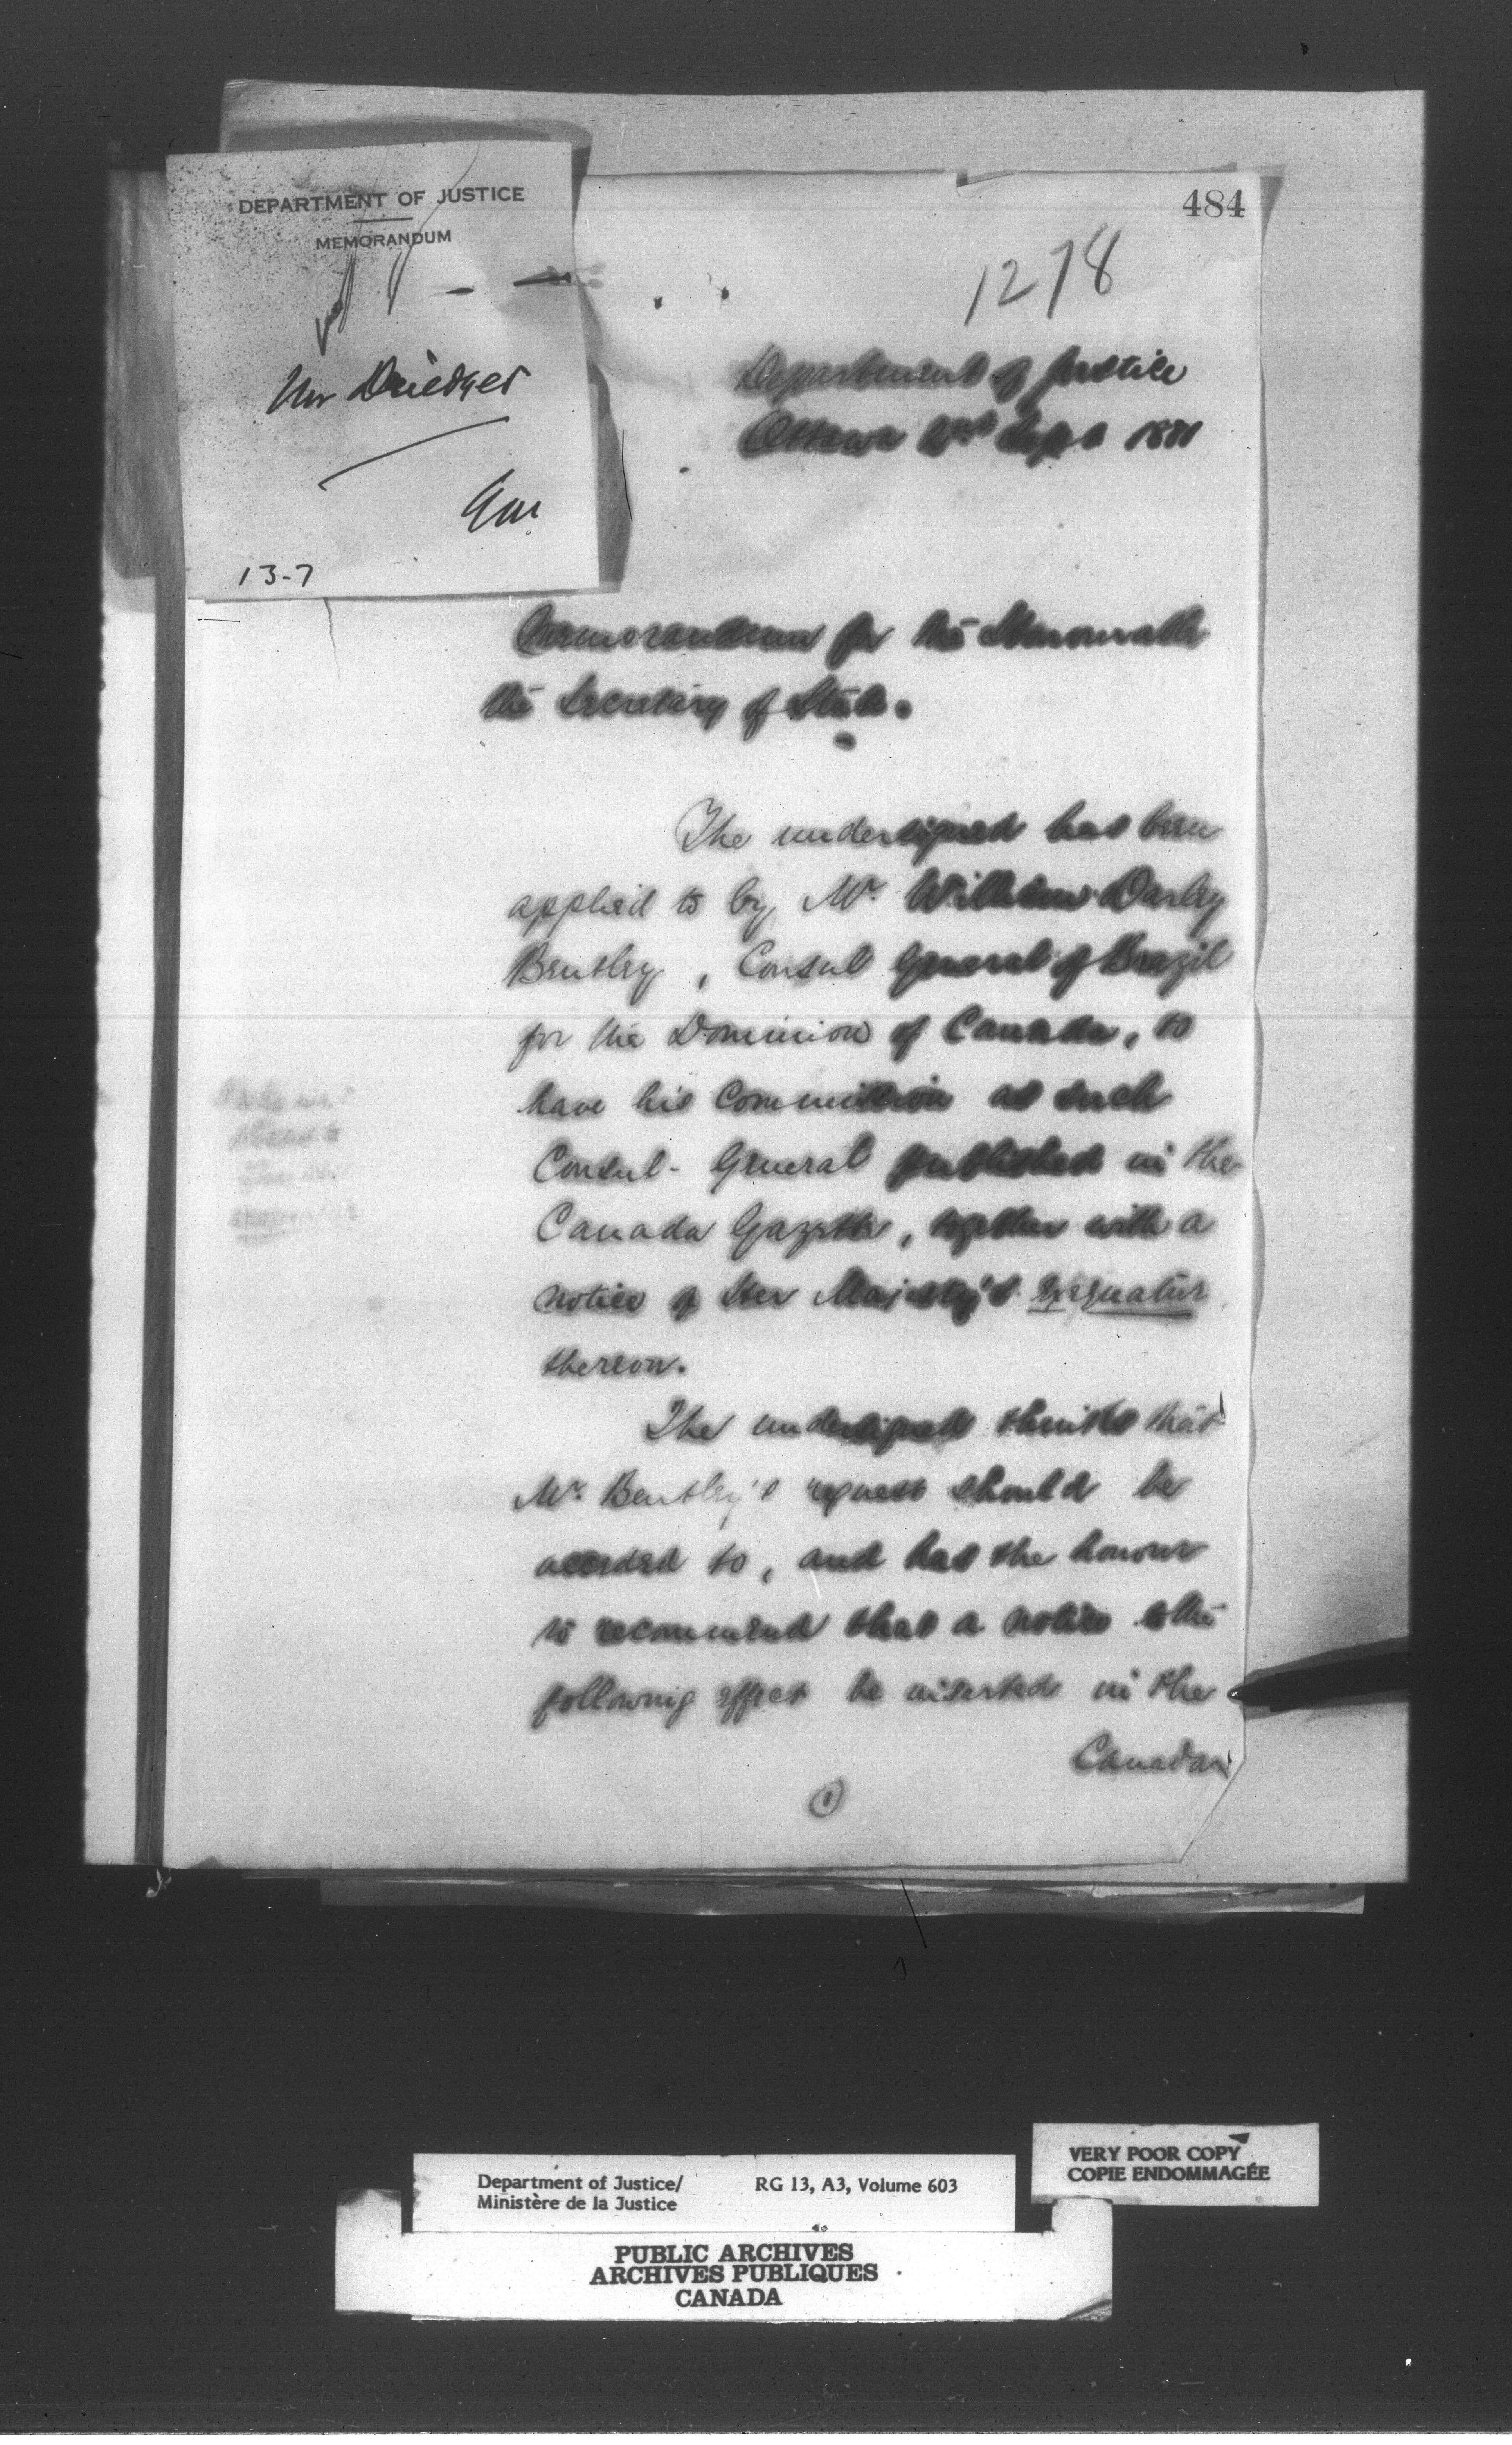 DEPARTMENT OF JUSTICE
MEMORANDUM
Mr Driedger
13-7
484
1278
Department of Justice
Ottawa 2nd Sept 1881
Memorandum for the Honourable
the Secretary of State.
The undersigned has been
applied to by Mr. William Darley
Bentley, Consul General of Brazil
for the Dominion of Canada, to
have his Commission as such
Consul-General published in the
Canada Gazette, together with a
notice of Her Majesty's Exequatur
thereon.
The undersigned thinks that
Mr. Bentley's request should be
acceded to, and has the honour
to recommend that a notice to the
following effect be inserted in the
Canada
1
Department of Justice/
Ministère de la Justice
RG 13, A3, Volume 603
VERY POOR COPY
COPIE ENDOMMAGÉE
PUBLIC ARCHIVES
ARCHIVES PUBLIQUES
CANADA